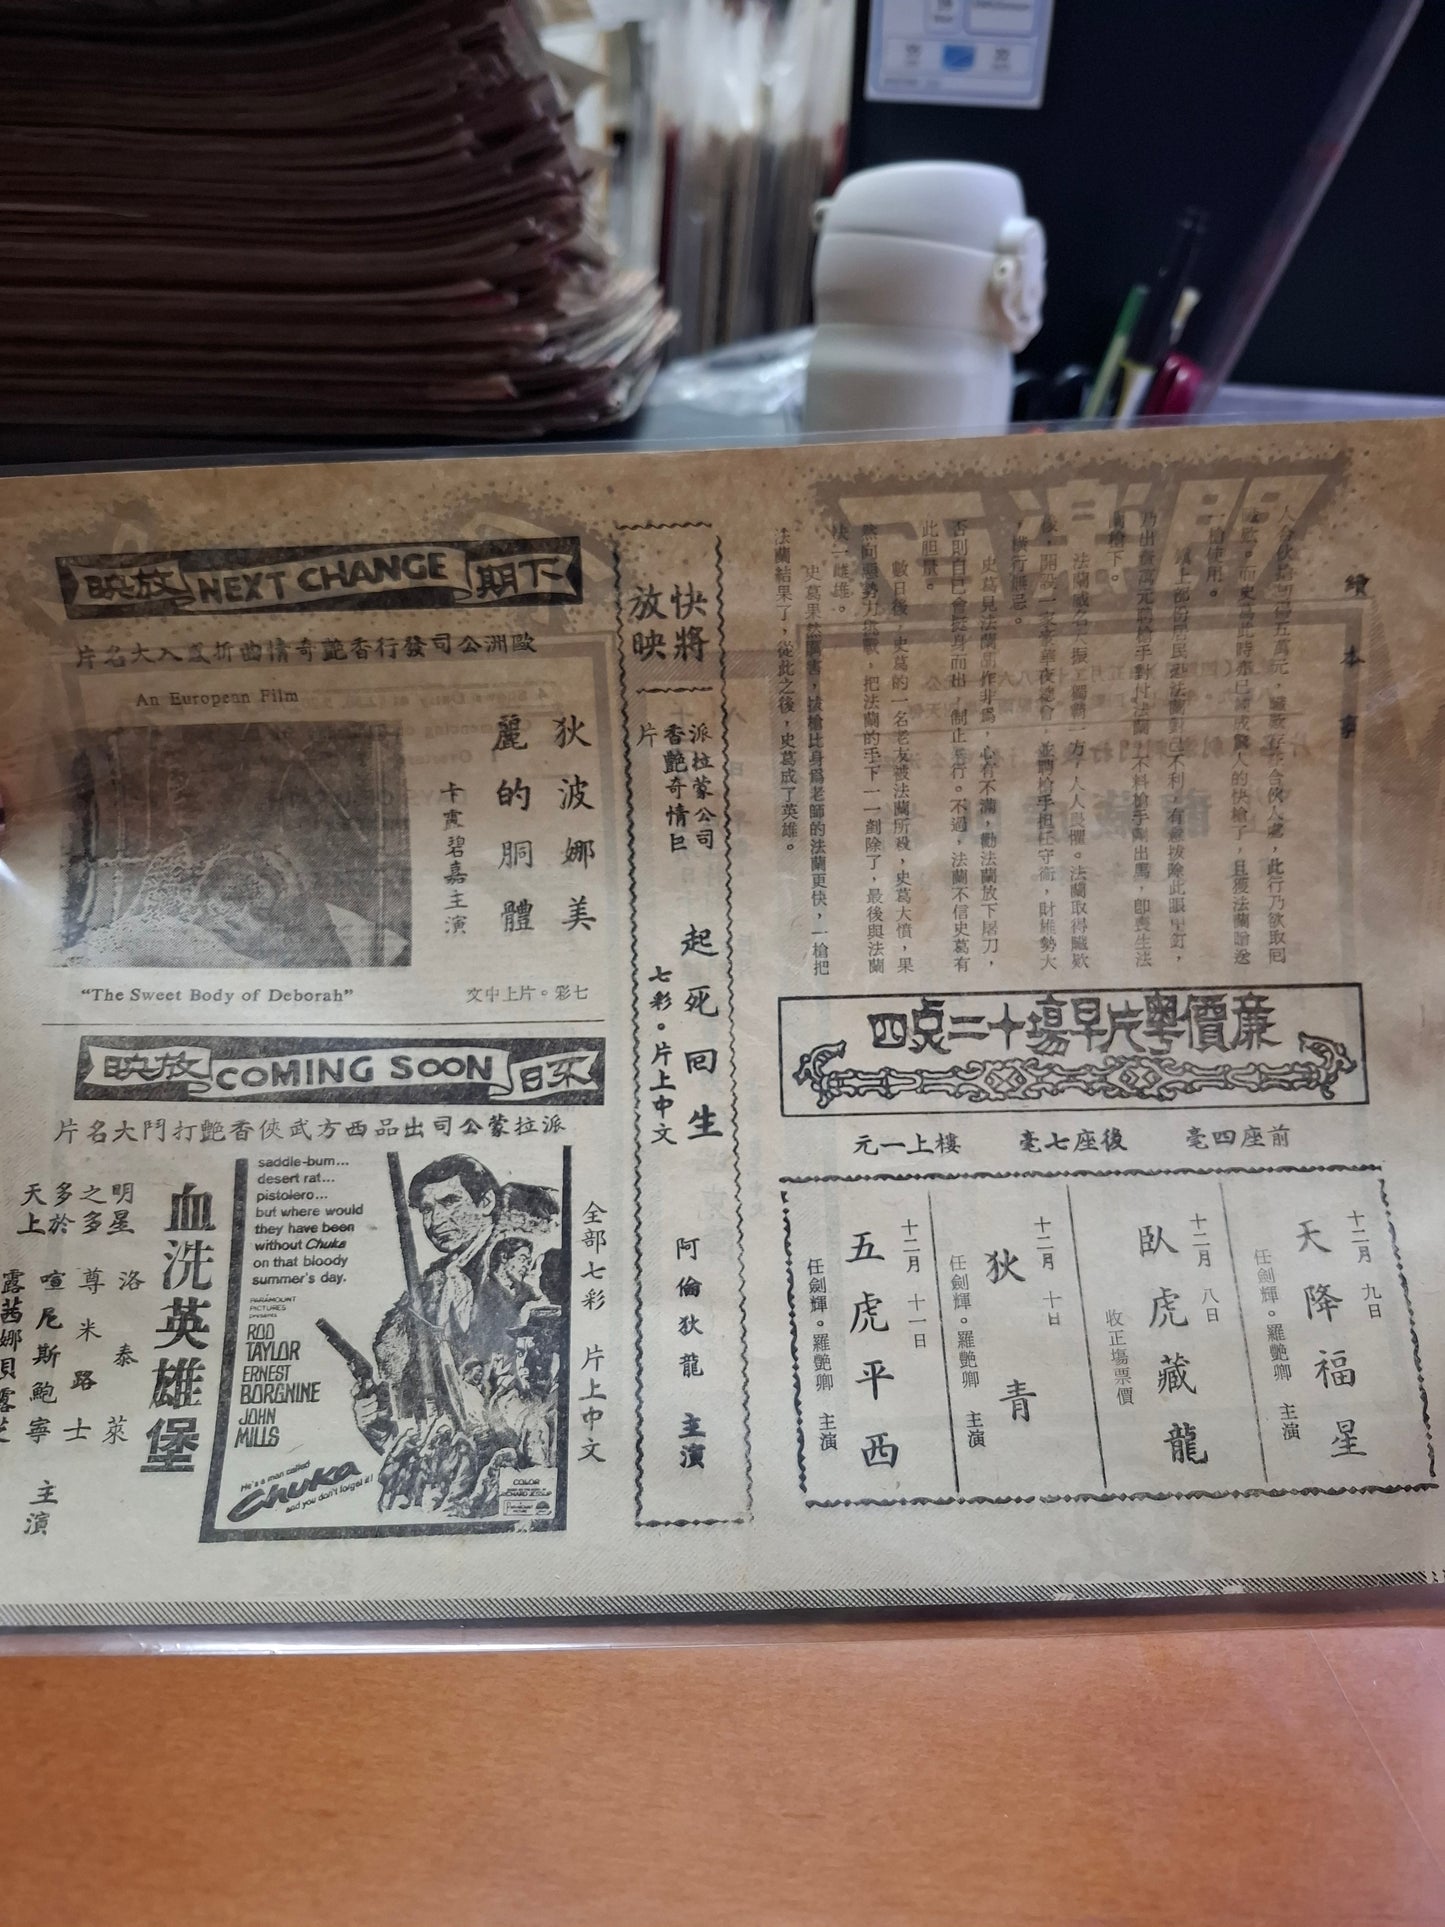 續本事
人合伙
一槍使用。
乃出
蘭槍下。
法蘭威名大振,獨霸一方,人人畏懼。法蘭取得贓欵
後,開設一家豪華夜總會,並聘槍手担任守衛,財雄勢大
,橫行無忌。
史葛見法蘭
作非爲,心有不滿,勸法蘭放下屠刀,
否則自己會挺身而出,制止
行。不過,法蘭不信史葛有
此胆量。
數日後,史葛的一名老友被法蘭所殺,史葛大憤,果
把法蘭的手下一一剷除了,最後與法蘭
決一雌雄。
史葛果然
拔槍比身爲老師的法蘭更快,一槍把
法蘭結果了,從此之後,史葛成了英雄。
廉價粤片早場十二点四
前座四毫
後座七毫
樓上一元
十二月九日
天降福星
任劍輝。羅艷卿 主演
十二月八日
臥虎藏龍
收正場票價
十二月十日
狄青
任劍輝。羅艷卿 主演
十二月十一日
五虎平西
任劍輝。羅艷卿 主演
快將
放映
派拉蒙公司
香艷奇情巨
片
起死回生
七彩。片上中文
阿倫狄龍 主演
下期 NEXT CHANGE 放映
歐洲公司發行香艷奇情曲折感人大名片
An European Film
狄波娜美
麗的胴體
卡露碧嘉主演
"The Sweet Body of Deborah"
七彩。片上中文
不日 COMING SOON 放映
派拉蒙公司出品西方武俠香艷打鬥大名片
全部七彩 片上中文
saddle-bum...
desert rat...
pistolero...
but where would
they have been
without Chuka
on that bloody
summer's day.
PARAMOUNT
PICTURES
presents
ROD
TAYLOR
ERNEST
BORGNINE
JOHN
MILLS
He's a man called
Chuka
and you don't forget it!
COLOR
血洗英雄堡
明星
之多
多於
天上
洛泰萊
尊米路士
喧尼斯鮑寧
露茜娜貝露芝
主演